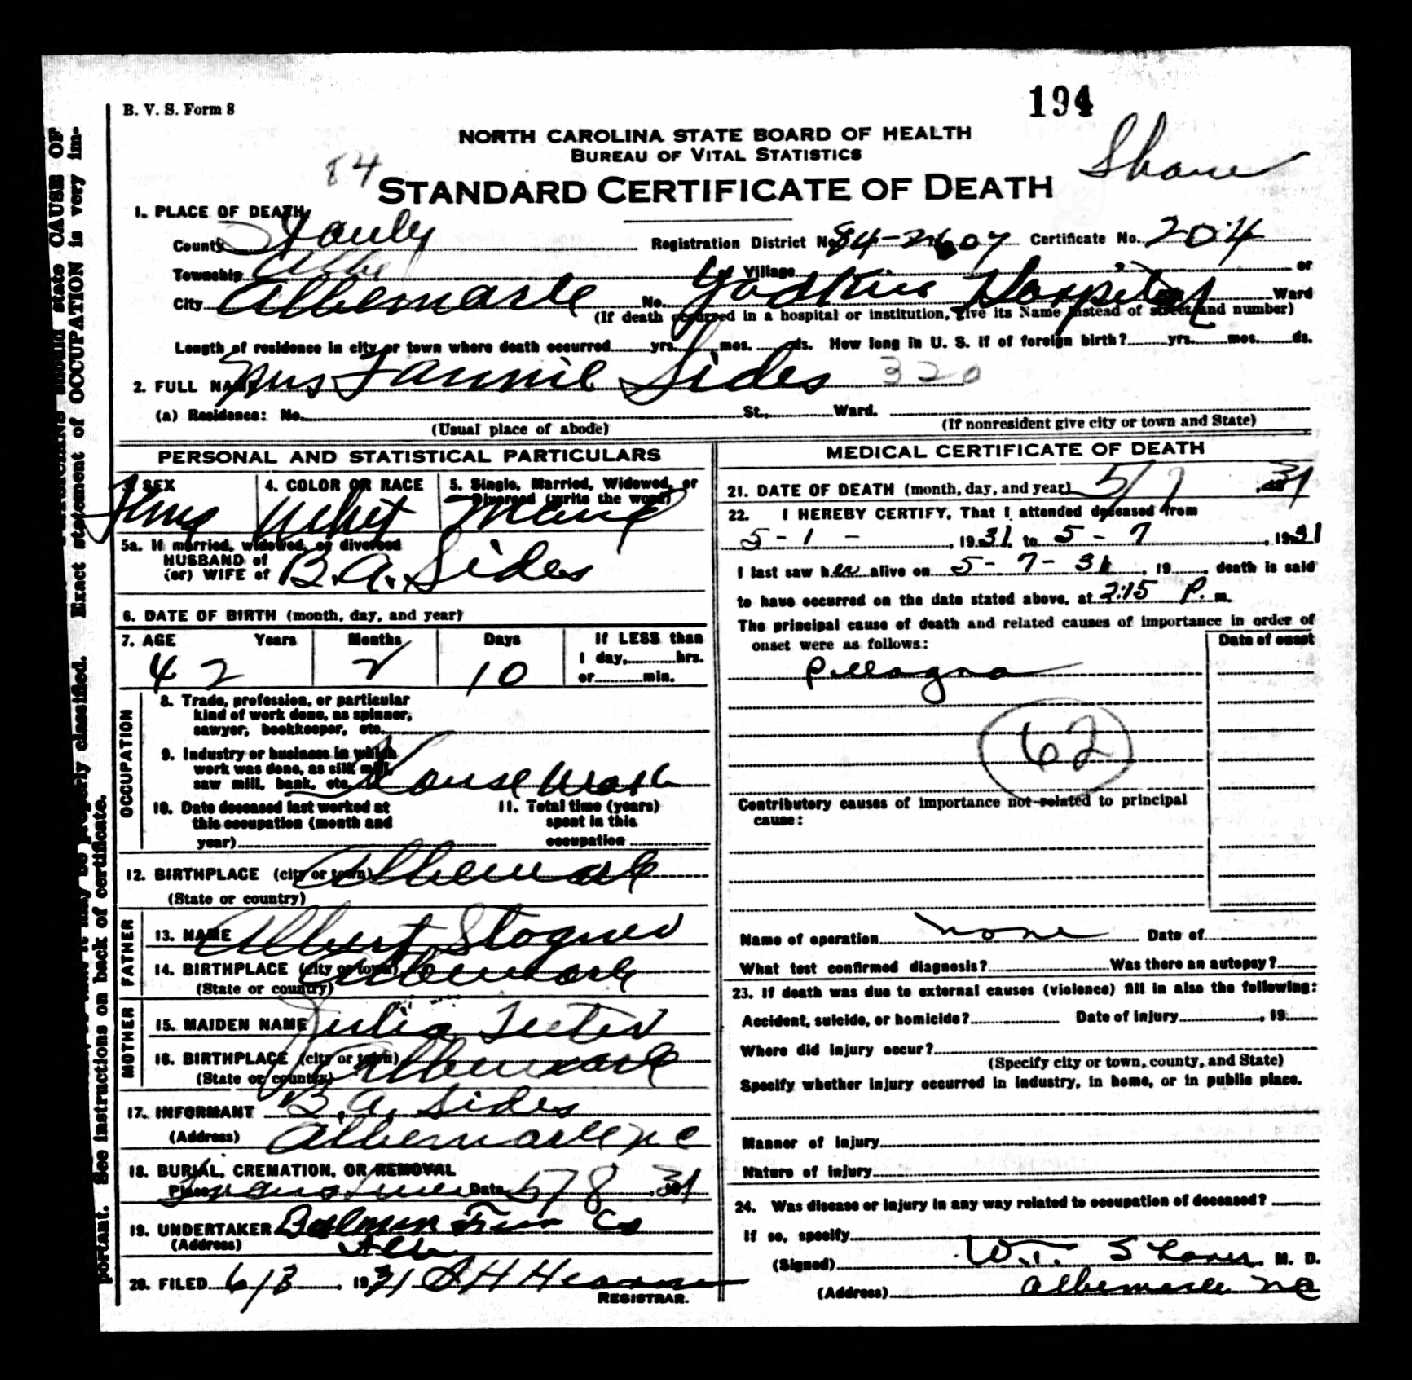 194
B. V. S. Form 8
NORTH CAROLINA STATE BOARD OF HEALTH
BUREAU OF VITAL STATISTICS
84
STANDARD CERTIFICATE OF DEATH
1. PLACE OF DEATH
County Stanly Registration District No. 84-2607 Certificate No. 204
Township Albe Village or
City Albemarle No. Yadkin Hospital Ward
(If death occurred in a hospital or institution, give its Name instead of street and number)
Length of residence in city or town where death occurred yrs. mos. ds. How long in U. S. if of foreign birth? yrs. mos. ds.
2. FULL NAME Mrs Fannie Sides 320
(a) Residence: No. St., Ward.
(Usual place of abode) (If nonresident give city or town and State)
PERSONAL AND STATISTICAL PARTICULARS
3. SEX 4. COLOR OR RACE 5. Single, Married, Widowed, or
Divorced (write the word)
Whit
5a. If married, widowed, or divorced
HUSBAND of
(or) WIFE of B.A. Sides
6. DATE OF BIRTH (month, day, and year)
7. AGE Years Months Days If LESS than
1 day, hrs.
or min.
42 2 10
OCCUPATION
8. Trade, profession, or particular
kind of work done, as spinner,
sawyer, bookkeeper, etc.
9. Industry or business in which
work was done, as silk mill,
saw mill, bank, etc. House Work
10. Date deceased last worked at
this occupation (month and
year)
11. Total time (years)
spent in this
occupation
12. BIRTHPLACE (city or town) Albemarle
(State or country)
FATHER
13. NAME Albert Stogner
14. BIRTHPLACE (city or town) Albemarle
(State or country)
MOTHER
15. MAIDEN NAME Julia Teeter
16. BIRTHPLACE (city or town) Albemarle
(State or country)
17. INFORMANT B.A. Sides
(Address) Albemarle N C
18. BURIAL, CREMATION, OR REMOVAL
Place Date 5/8 31
19. UNDERTAKER Furn Co
(Address) Alb
20. FILED 6/3, 1931
REGISTRAR.
MEDICAL CERTIFICATE OF DEATH
21. DATE OF DEATH (month, day, and year) 5/7 31
22. I HEREBY CERTIFY, That I attended deceased from
5 - 1 - , 1931 to 5 - 7 , 1931
I last saw her alive on 5 - 7 - 31, 19 , death is said
to have occurred on the date stated above, at 2:15 P. m.
The principal cause of death and related causes of importance in order of
onset were as follows:
Date of onset
Pellagra
62
Contributory causes of importance not related to principal
cause:
Name of operation none Date of
What test confirmed diagnosis? Was there an autopsy?
23. If death was due to external causes (violence) fill in also the following:
Accident, suicide, or homicide? Date of injury , 19
Where did injury occur?
(Specify city or town, county, and State)
Specify whether injury occurred in industry, in home, or in public place.
Manner of injury
Nature of injury
24. Was disease or injury in any way related to occupation of deceased?
If so, specify
(Signed) W.T. M. D.
(Address) Albemarle NC
should state CAUSE OF
Exact statement of OCCUPATION is very im-
portant. See instructions on back of certificate.